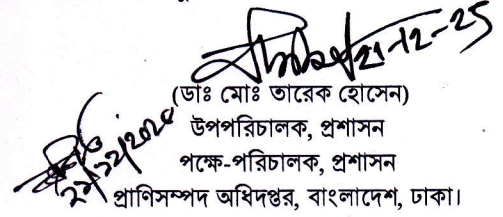 21-12-25
(ডাঃ মোঃ তারেক হোসেন)
উপপরিচালক, প্রশাসন
পক্ষে-পরিচালক, প্রশাসন
প্রাণিসম্পদ অধিদপ্তর, বাংলাদেশ, ঢাকা।